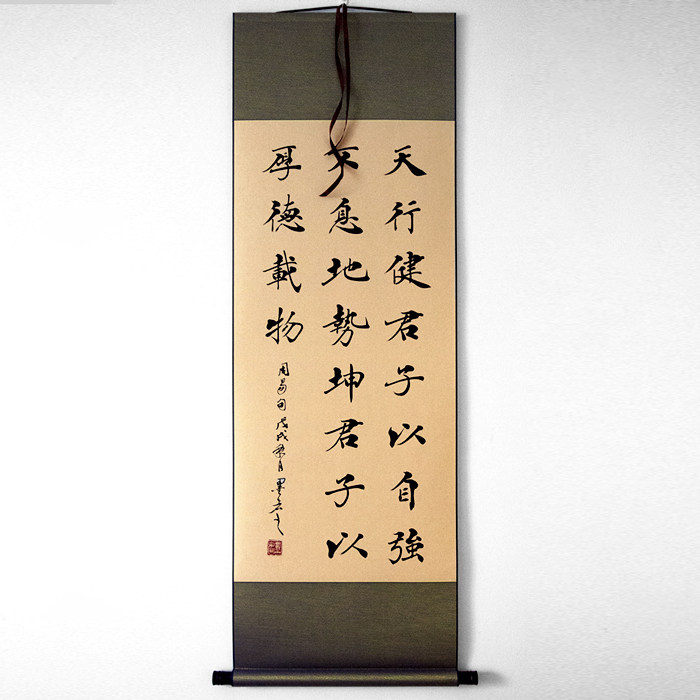 天行健君子以自強
不息地勢坤君子以
厚德載物
周易句戊戌